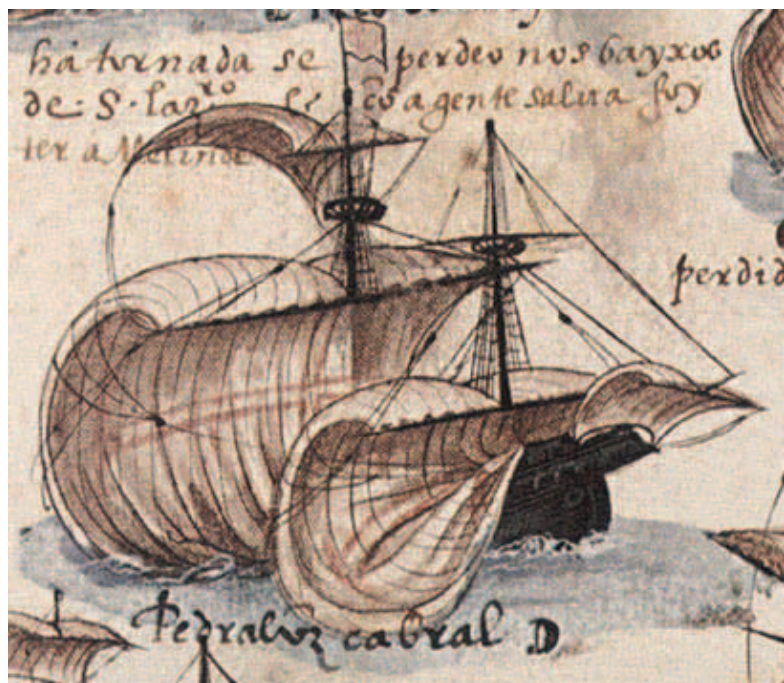 há tornada se perdeo nos bayxos
de: S. lazro e cõ a gente salua foy
ter a Melinde
perdid
Pedralvrz cabral D